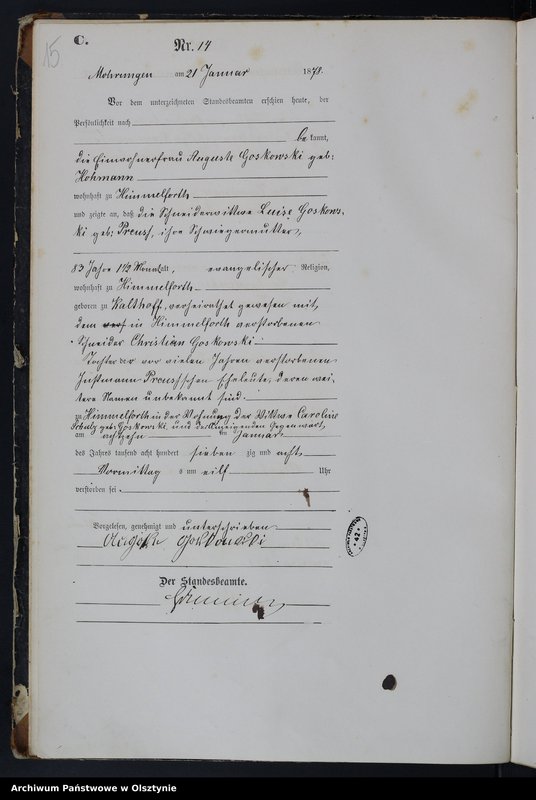 15
C.
Nr. 14
Mohrungen am 21 Januar 1878.
Vor dem unterzeichneten Standesbeamten erschien heute, der
Persönlichkeit nach
bekannt,
die Einwohnerfrau Auguste Goskowski geb:
Hohmann
wohnhaft zu Himmelforth
und zeigte an, daß die Schneiderwittwe Luise Goskows-
ki geb: Preuss, ihre Schwiegermutter,
83 Jahre 1 1/2 Monat alt, evangelischer Religion,
wohnhaft zu Himmelforth
geboren zu Kalthoff, verheirathet gewesen mit
dem in Himmelforth verstorbenen
Schneider Christian Goskowski
Tochter der vor vielen Jahren verstorbenen
Preuss'schen Eheleute, deren wei-
tere Namen unbekannt sind.
zu Himmelforth in der Wohnung der Wittwe Caroline
geb: Goskowski, und in Gegenwart
am achtzehn ten Januar
des Jahres tausend acht hundert sieben zig und acht
Vormittag s um eilf Uhr
verstorben sei.
Vorgelesen, genehmigt und unterschrieben
Auguste Goskowski
Der Standesbeamte.
42
Archiwum Państwowe w Olsztynie